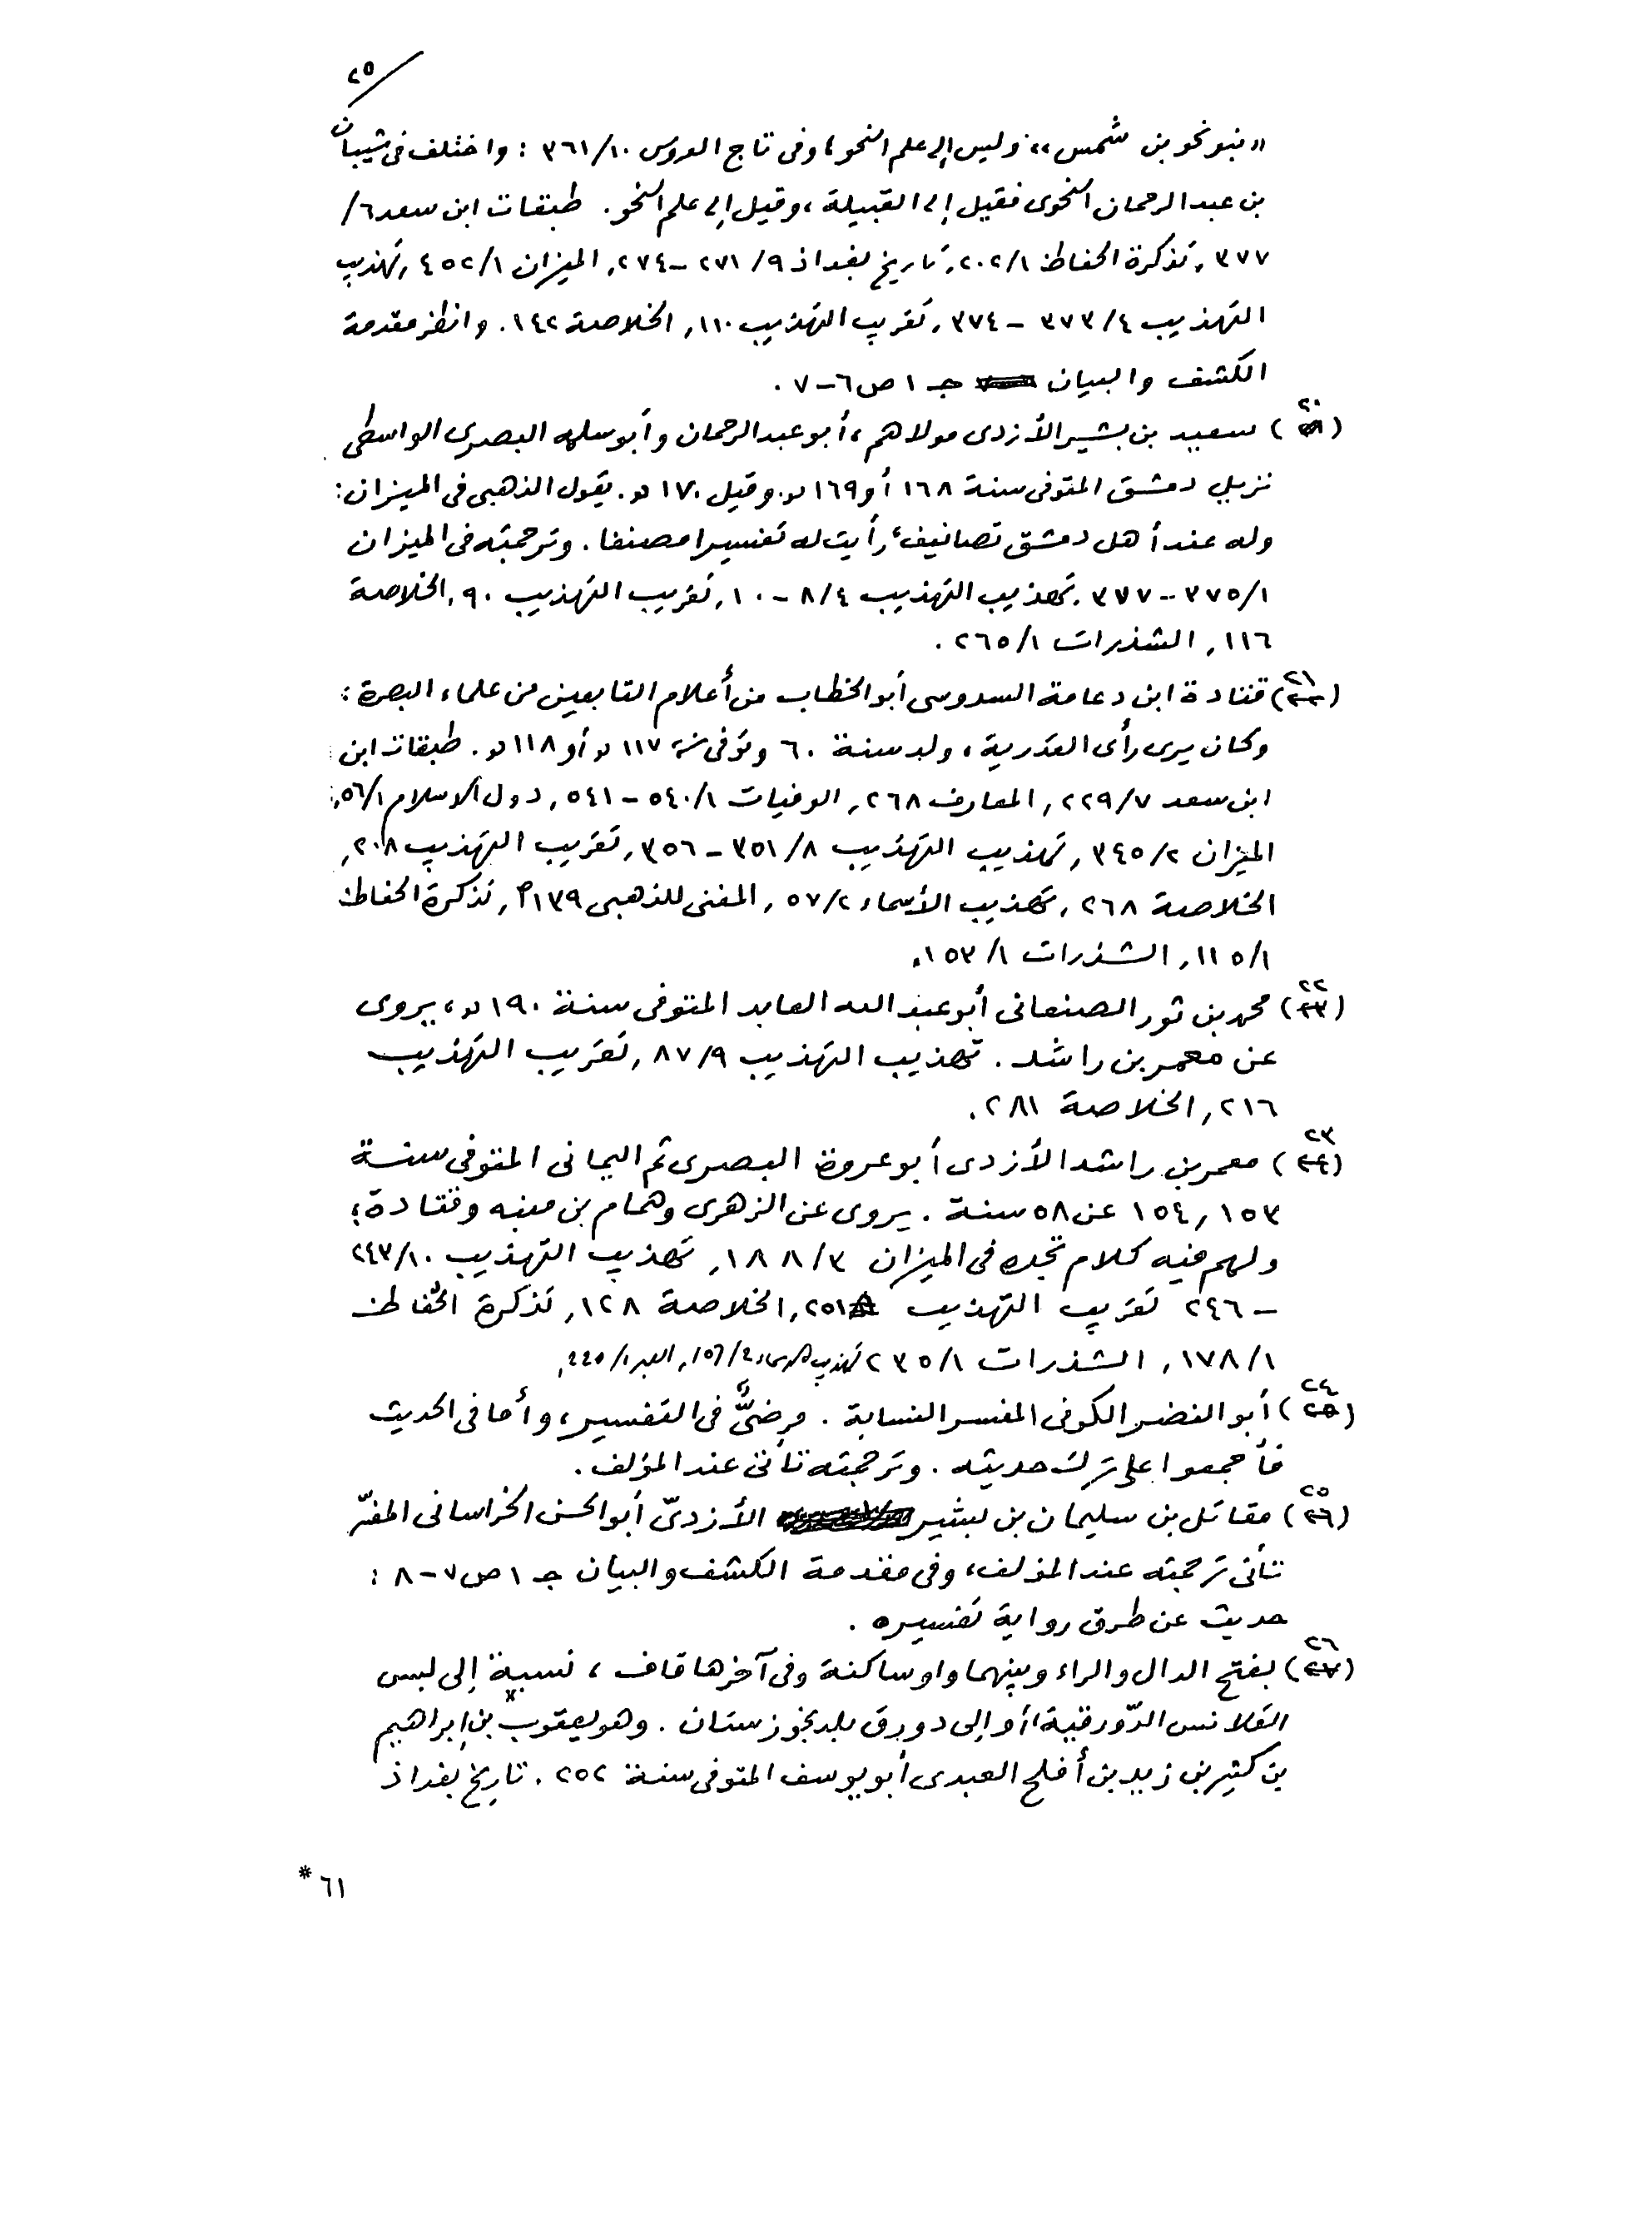 ٢٥
«بنو نحو بن شمس» وليس إلى علم النحو، وفى تاج العروس ٣٦١/١٠ : واختلف فى شيبان
بن عبد الرحمان النحوى فقيل إلى القبيلة، وقيل إلى علم النحو. طبقات ابن سعد ٦/
٣٧٧, تذكرة الحفاظ ٢٠٢/١, تاريخ بغداذ ٢٧١/٩ - ٢٧٤, الميزان ٤٥٢/١, تهذيب
التهذيب ٣٧٣/٤ - ٣٧٤, تقريب التهذيب ١١٠, الخلاصة ١٤٢. وانظر مقدمة
الكشف والبيان جـ ١ ص ٦-٧.
(٢٠) سعيد بن بشير الأزدى مولاهم، أبو عبد الرحمان وأبو سلمه البصرى الواسطى
نزيل دمشق المتوفى سنة ١٦٨ أو ١٦٩ هـ. وقيل ١٧٠ هـ. يقول الذهبى فى الميزان:
وله عند أهل دمشق تصانيف، رأيت له تفسيرا مصنفا. وترجمته فى الميزان
٣٧٥/١ - ٣٧٧, تهذيب التهذيب ٨/٤ - ١٠, تقريب التهذيب ٩٠, الخلاصة
١١٦, الشذرات ٢٦٥/١.
(٢١) قتادة ابن دعامة السدوسى أبو الخطاب من أعلام التابعين من علماء البصرة؛
وكان يرى رأى القدرية، ولد سنة ٦٠ وتوفى سنة ١١٧ هـ أو ١١٨ هـ. طبقات ابن
ابن سعد ٢٢٩/٧, المعارف ٢٦٨, الوفيات ٥٤٠/١ - ٥٤١, دول الاسلام ٥٦/١,
الميزان ٣٤٥/٢, تهذيب التهذيب ٣٥١/٨ - ٣٥٦, تقريب التهذيب ٢٠٨,
الخلاصة ٢٦٨, تهذيب الأسماء ٥٧/٢, المغنى للذهبى ١٣٩, تذكرة الحفاظ
١١٥/١, الشذرات ١٥٣/١.
(٢٢) محمد بن ثور الصنعانى أبو عبد الله العابد المتوفى سنة ١٩٠ هـ، يروى
عن معمر بن راشد. تهذيب التهذيب ٨٧/٩, تقريب التهذيب
٢١٦, الخلاصة ٢٨١.
(٢٣) معمر بن راشد الأزدى أبو عروة البصرى ثم اليمانى المتوفى سنة
١٥٣, ١٥٤ عن ٥٨ سنة. يروى عن الزهرى وهمام بن منبه وقتادة؛
ولهم فيه كلام تجده فى الميزان ١٨٨/٣, تهذيب التهذيب ٢٤٣/١٠
- ٢٤٦ تقريب التهذيب ٢٥١, الخلاصة ١٢٨, تذكرة الحفاظ
١٧٨/١, الشذرات ٢٣٥/١ تهذيب الاسماء ١٥٦/٢, العبر ٢٢٥/١,
(٢٤) أبو النضر الكوفى المفسر النسابة. مرضىٌّ فى التفسير، وأما فى الحديث
فأجمعوا على ترك حديثه. وترجمته تأتى عند المؤلف.
(٢٥) مقاتل بن سليمان بن بشير الأزدىّ أبو الحسن الخراسانى المفسّر
تأتى ترجمته عند المؤلف، وفى مقدمة الكشف والبيان جـ ١ ص ٧-٨ :
حديث عن طرق رواية تفسيره.
(٢٦) بفتح الدال والراء وبينهما واو ساكنة وفى آخرها قاف، نسبة إلى لبس
القلانس الدّورقية، أو إلى دورق بلد بخوزستان. وهو يعقوب بن إبراهيم
بن كثير بن زيد بن أفلح العبدى أبو يوسف المتوفى سنة ٢٥٢. تاريخ بغداذ
٦١ *